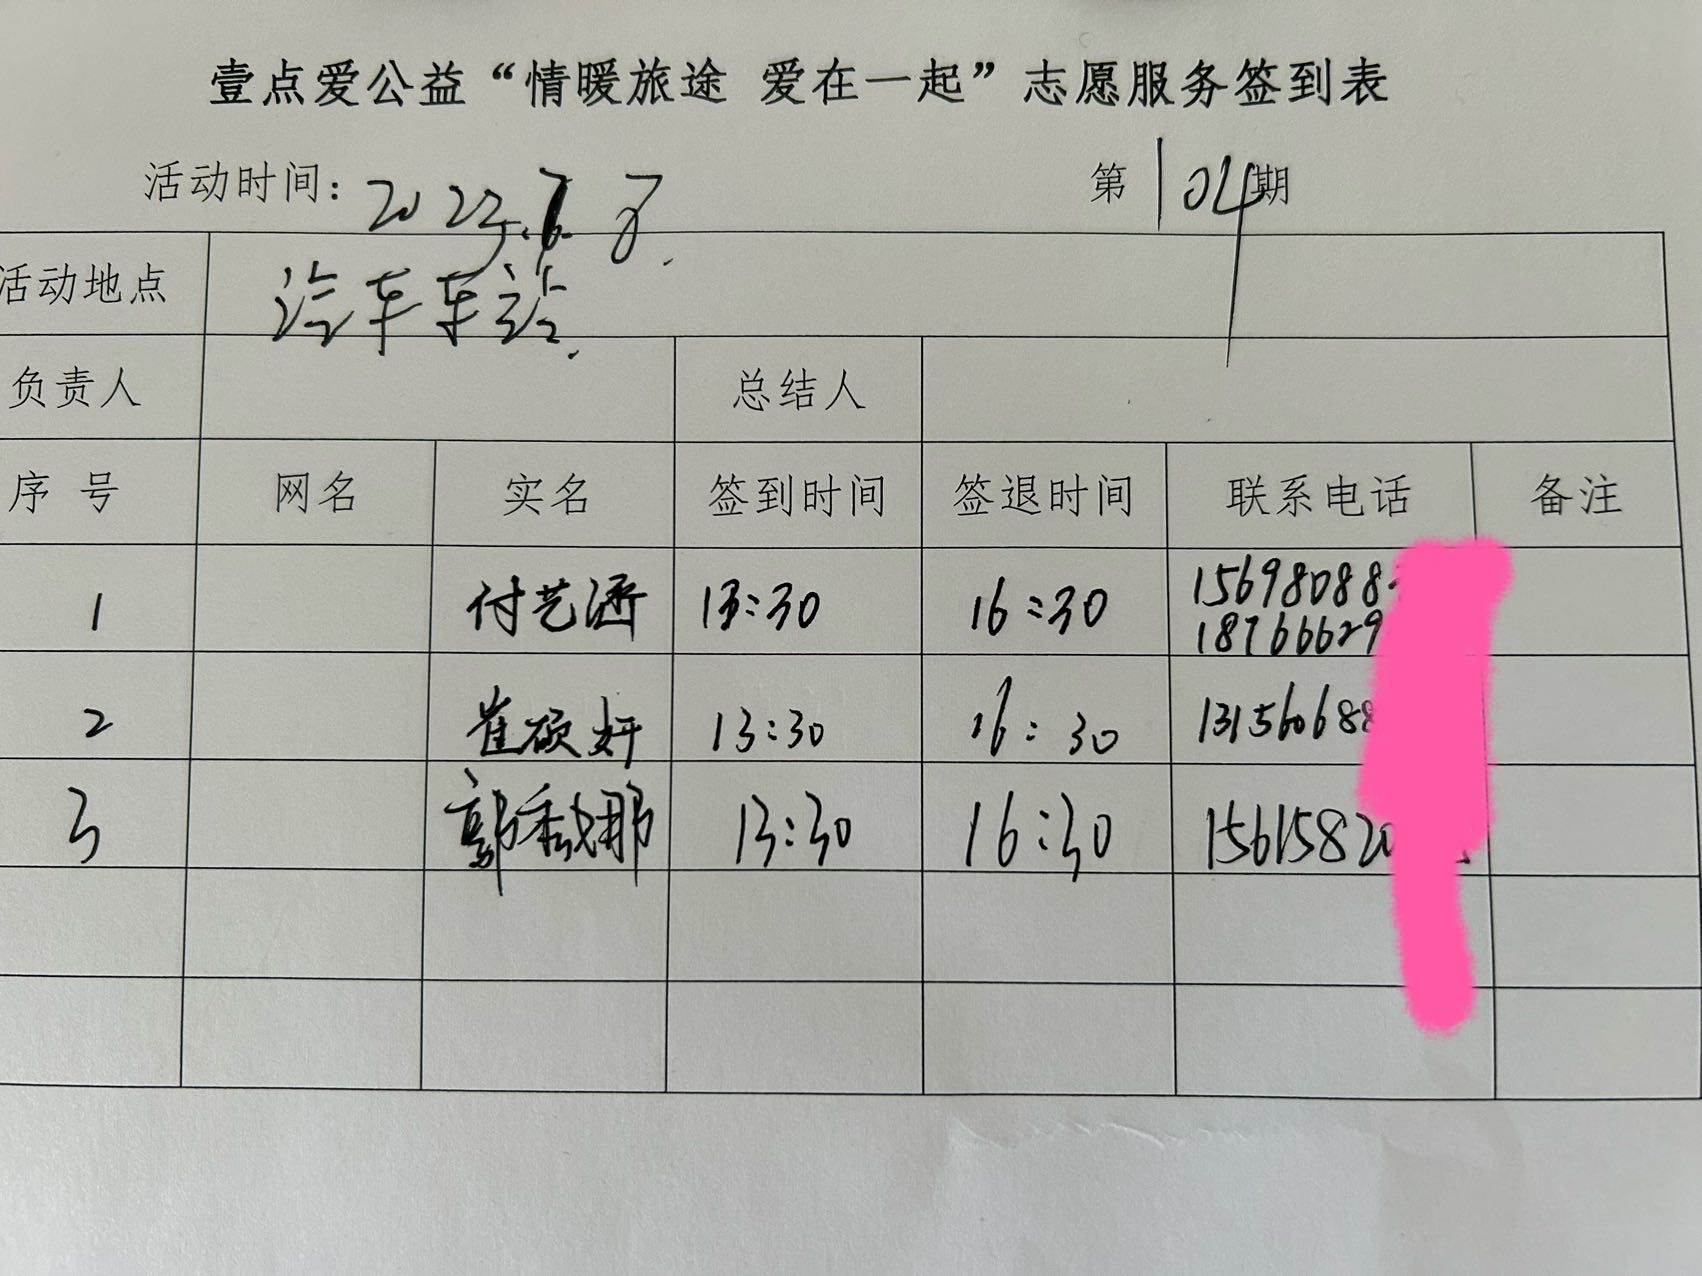 壹点爱公益“情暖旅途 爱在一起”志愿服务签到表
活动时间: 2023. 8. 第104期
活动地点 汽车车站.
负责人 总结人
序号 网名 实名 签到时间 签退时间 联系电话 备注
1 付艺涵 13:30 16:30 15698088
18766629
2 崔硕妍 13:30 16:30 131560688
3 郭秀娜 13:30 16:30 15615820